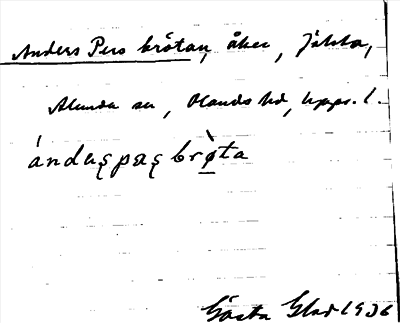 Anders Pers brötan, åker, Jökka,
Alunda sn, Olands hd, Upps. l.
ánduʂpæʂ brø̀ta
Gösta Glad 1936